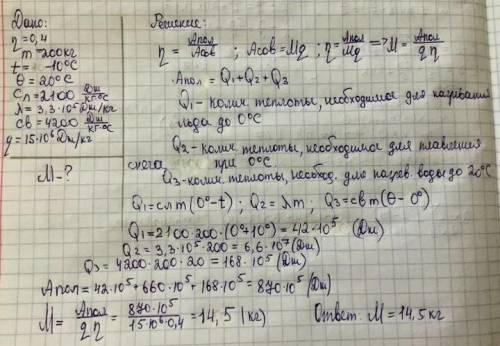 Дано:
η=0,4
m=200кг
t=-10°C
θ=20°C
Cл=2100 Дж/кг·°C
λ=3,3·10⁵ Дж/кг
Cв=4200 Дж/кг·°C
q=15·10⁶ Дж/кг
M-?
Решение:
η = Апол/Асов ; Асов=Mq; η=Апол/Mq => M = Апол/qη
Апол=Q1+Q2+Q3
Q1- колич теплоты, необходимое для нагревания
льда до 0°C
Q2- колич теплоты, необходимое для плавления
снега при 0°C
Q3-колич теплоты, необход. для нагрев воды до 20°C
Q1=cлm(0°-t); Q2=λm; Q3=cвm(θ-0°)
Q1=2100·200·(0+10°)=42·10⁵ (Дж)
Q2=3,3·10⁵·200=6,6·10⁷(Дж)
Q3=4200·200·20=168·10⁵(Дж)
Апол=42·10⁵+660·10⁵+168·10⁵=870·10⁵(Дж)
M= Апол/qη = 870·10⁵/15·10⁶·0,4 = 14,5 (кг)
Ответ: M=14,5кг